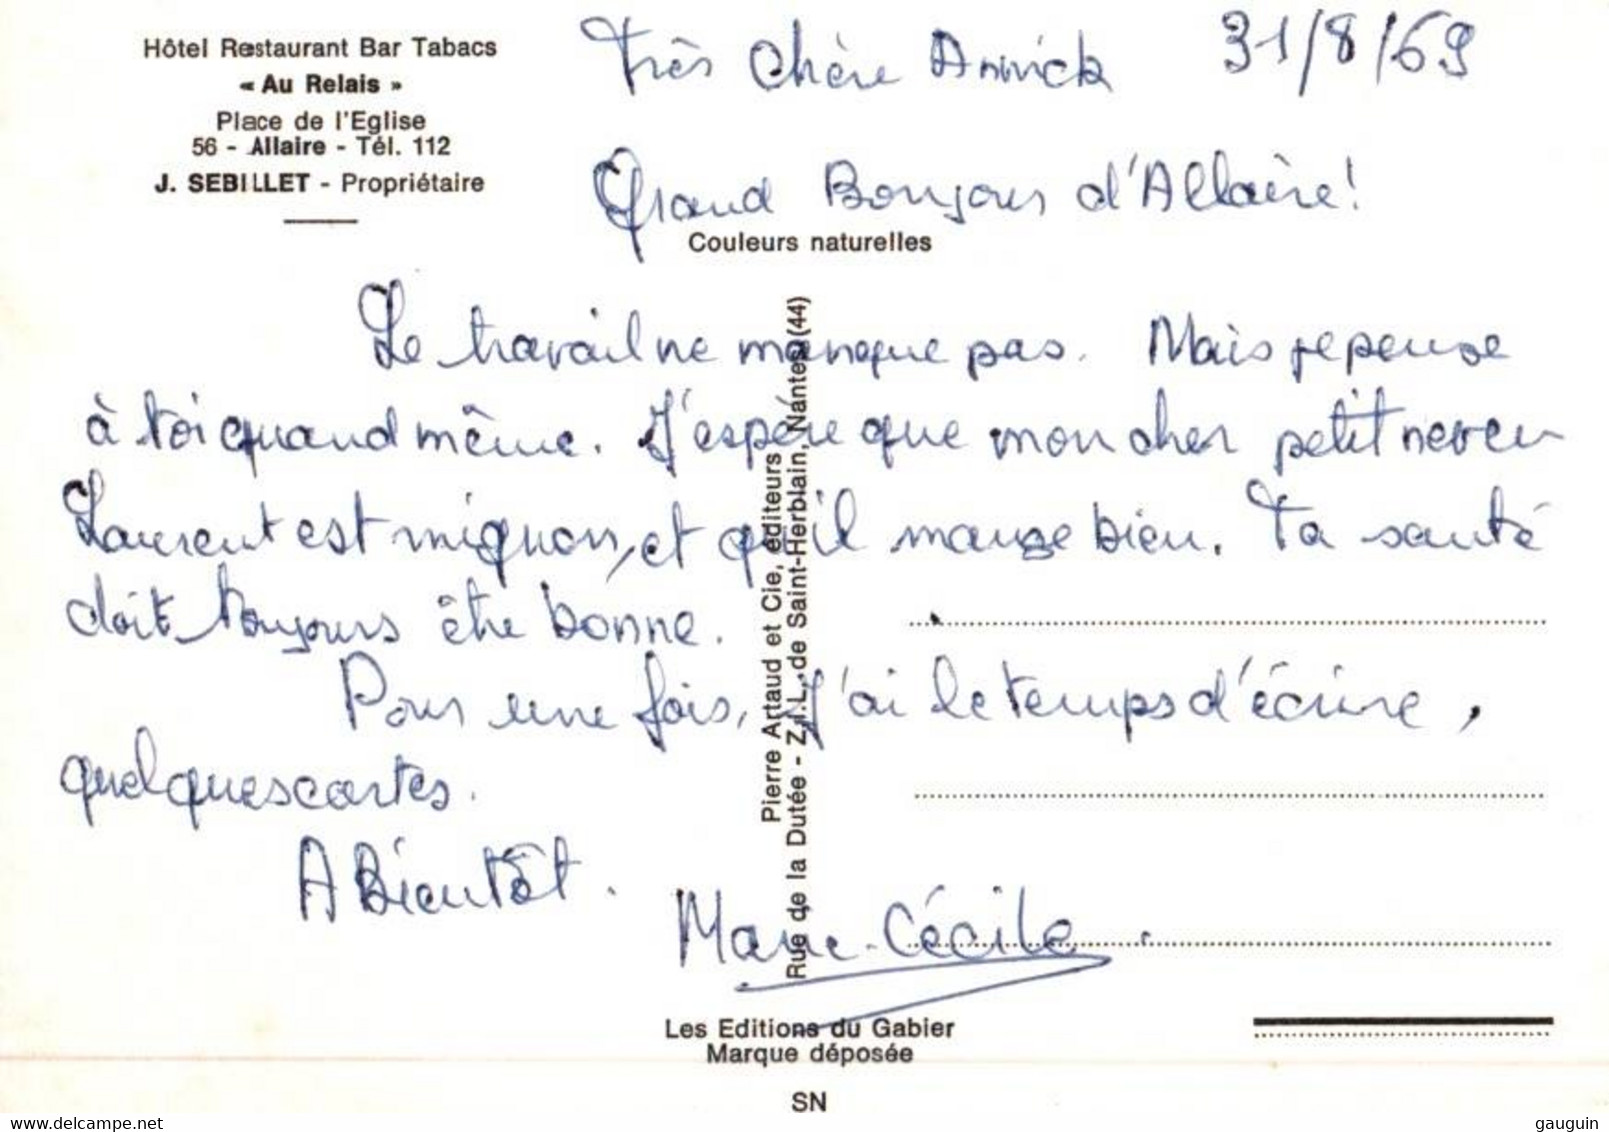 Hôtel Restaurant Bar Tabacs
« Au Relais »
Place de l'Eglise
56 - Allaire - Tél. 112
J. SEBILLET - Propriétaire
Très Chère Annick 31/8/69
Grand Bonjour d'Allaire!
Couleurs naturelles
Le travail ne manque pas. Mais je pense
à toi quand même. J'espère que mon cher petit neveu
Laurent est mignon, et qu'il mange bien. Ta santé
doit toujours être bonne.
Pour une fois, j'ai le temps d'écrire,
quelques cartes.
A Bientôt.
Marie-Cécile.
Pierre Artaud et Cie, éditeurs
Rue de la Dutée - Z.I.L. de Saint-Herblain, Nantes (44)
Les Editions du Gabier
Marque déposée
SN
www.delcampe.net
gauguin